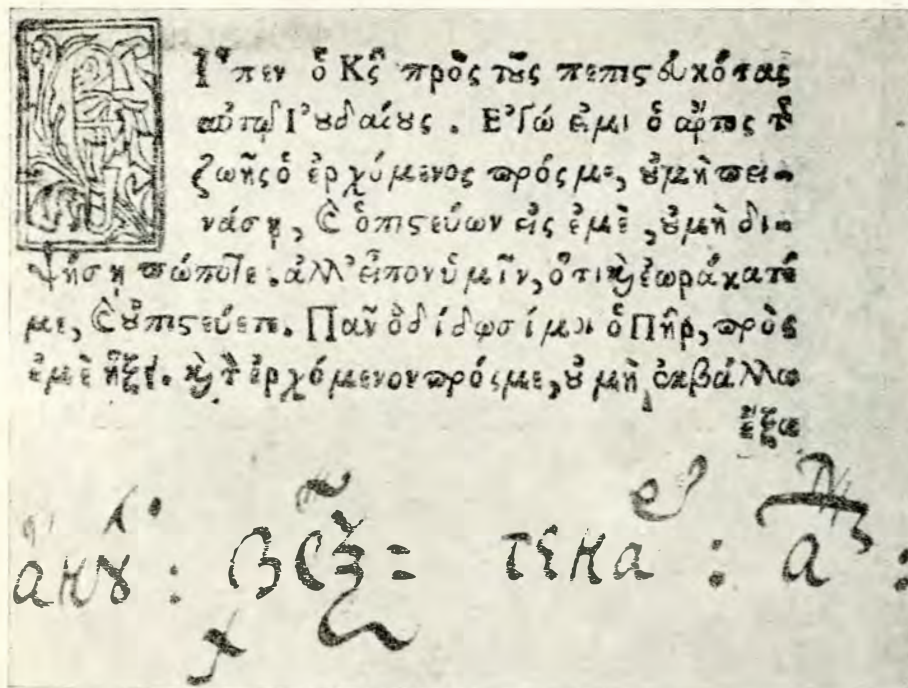 ΕΙ῏πεν ὁ Κς̅ πρὸς τοὺς πεπιστευκότας
αὐτῷ Ἰουδαίους . Ἐγώ εἰμι ὁ ἄρτος τῆς
ζωῆς ὁ ἐρχόμενος πρός με, οὐ μὴ πει-
νάσῃ, καὶ ὁ πιστεύων εἰς ἐμὲ, οὐ μὴ δι-
ψήσῃ πώποτε. ἀλλ' εἶπον ὑμῖν, ὅτι καὶ ἑωράκατέ
με, καὶ οὐ πιστεύετε. Πᾶν ὃ δίδωσί μοι ὁ Πηρ, πρὸς
ἐμὲ ἥξει. καὶ τὸν ἐρχόμενον πρός με, οὐ μὴ ἐκβάλλω
ἔξω